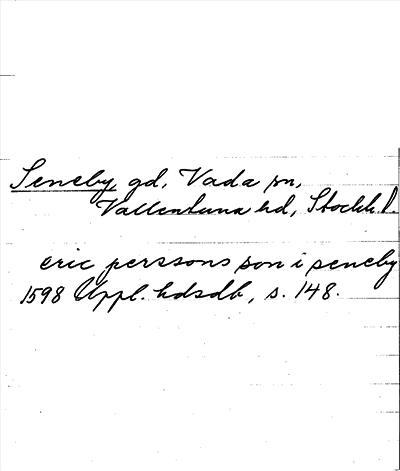 Seneby, gd, Vada sn,
Vallentuna hd, Stockh. l.
eric perssons son i seneby
1598 Uppl. hdsdb, s. 148.